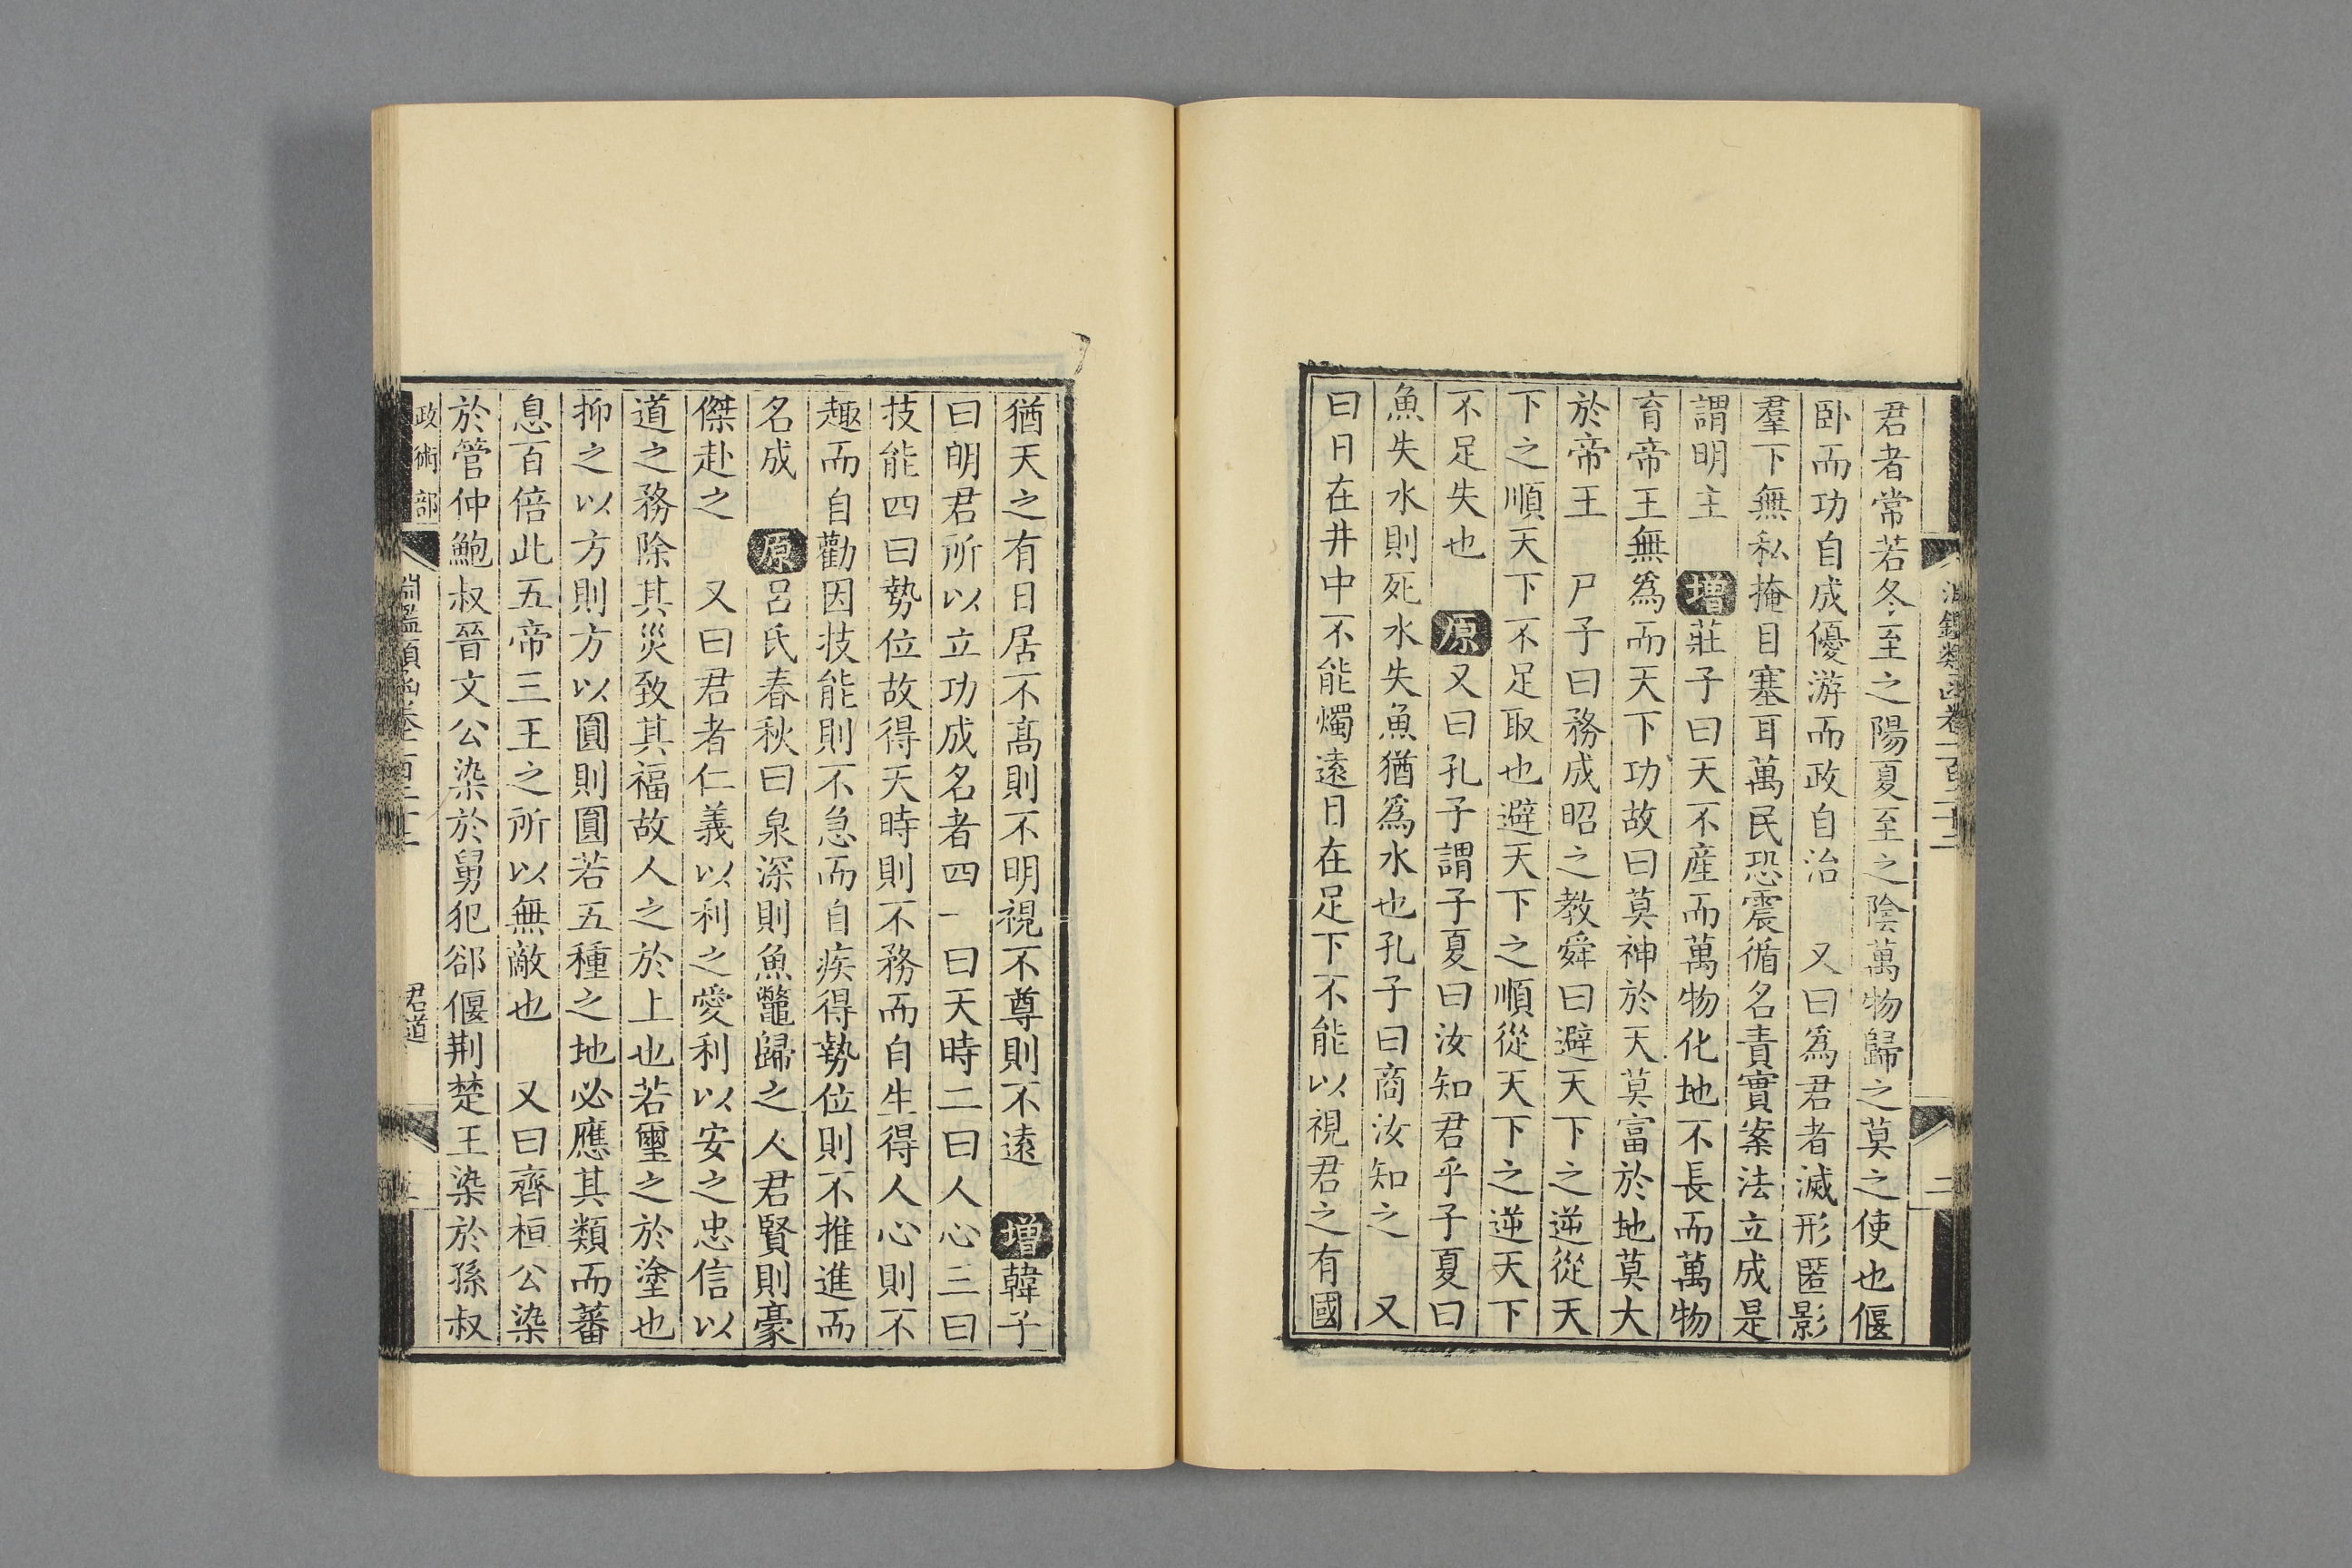 君者常若冬至之陽夏至之陰萬物歸之莫之使也偃
卧而功自成優游而政自治　又曰爲君者滅形匿影
羣下無私掩目塞耳萬民恐震循名責實案法立成是
謂明主　增莊子曰天不産而萬物化地不長而萬物
育帝王無爲而天下功故曰莫神於天莫富於地莫大
於帝王　尸子曰務成昭之教舜曰避天下之逆從天
下之順天下不足取也避天下之順從天下之逆天下
不足失也　原又曰孔子謂子夏曰汝知君乎子夏曰
魚失水則死水失魚猶爲水也孔子曰商汝知之　又
曰日在井中不能燭遠日在足下不能以視君之有國
猶天之有日居不高則不明視不尊則不遠　增韓子
曰明君所以立功成名者四一曰天時二曰人心三曰
技能四曰勢位故得天時則不務而自生得人心則不
趣而自勸因技能則不急而自疾得勢位則不推進而
名成　原呂氏春秋曰泉深則魚鼈歸之人君賢則豪
傑赴之　又曰君者仁義以利之愛利以安之忠信以
道之務除其災致其福故人之於上也若璽之於塗也
抑之以方則方以圓則圓若五種之地必應其類而蕃
息百倍此五帝三王之所以無敵也　又曰齊桓公染
於管仲鮑叔晉文公染於舅犯郤偃荆楚王染於孫叔
政術部　淵鑑類函卷一百二十二　君道